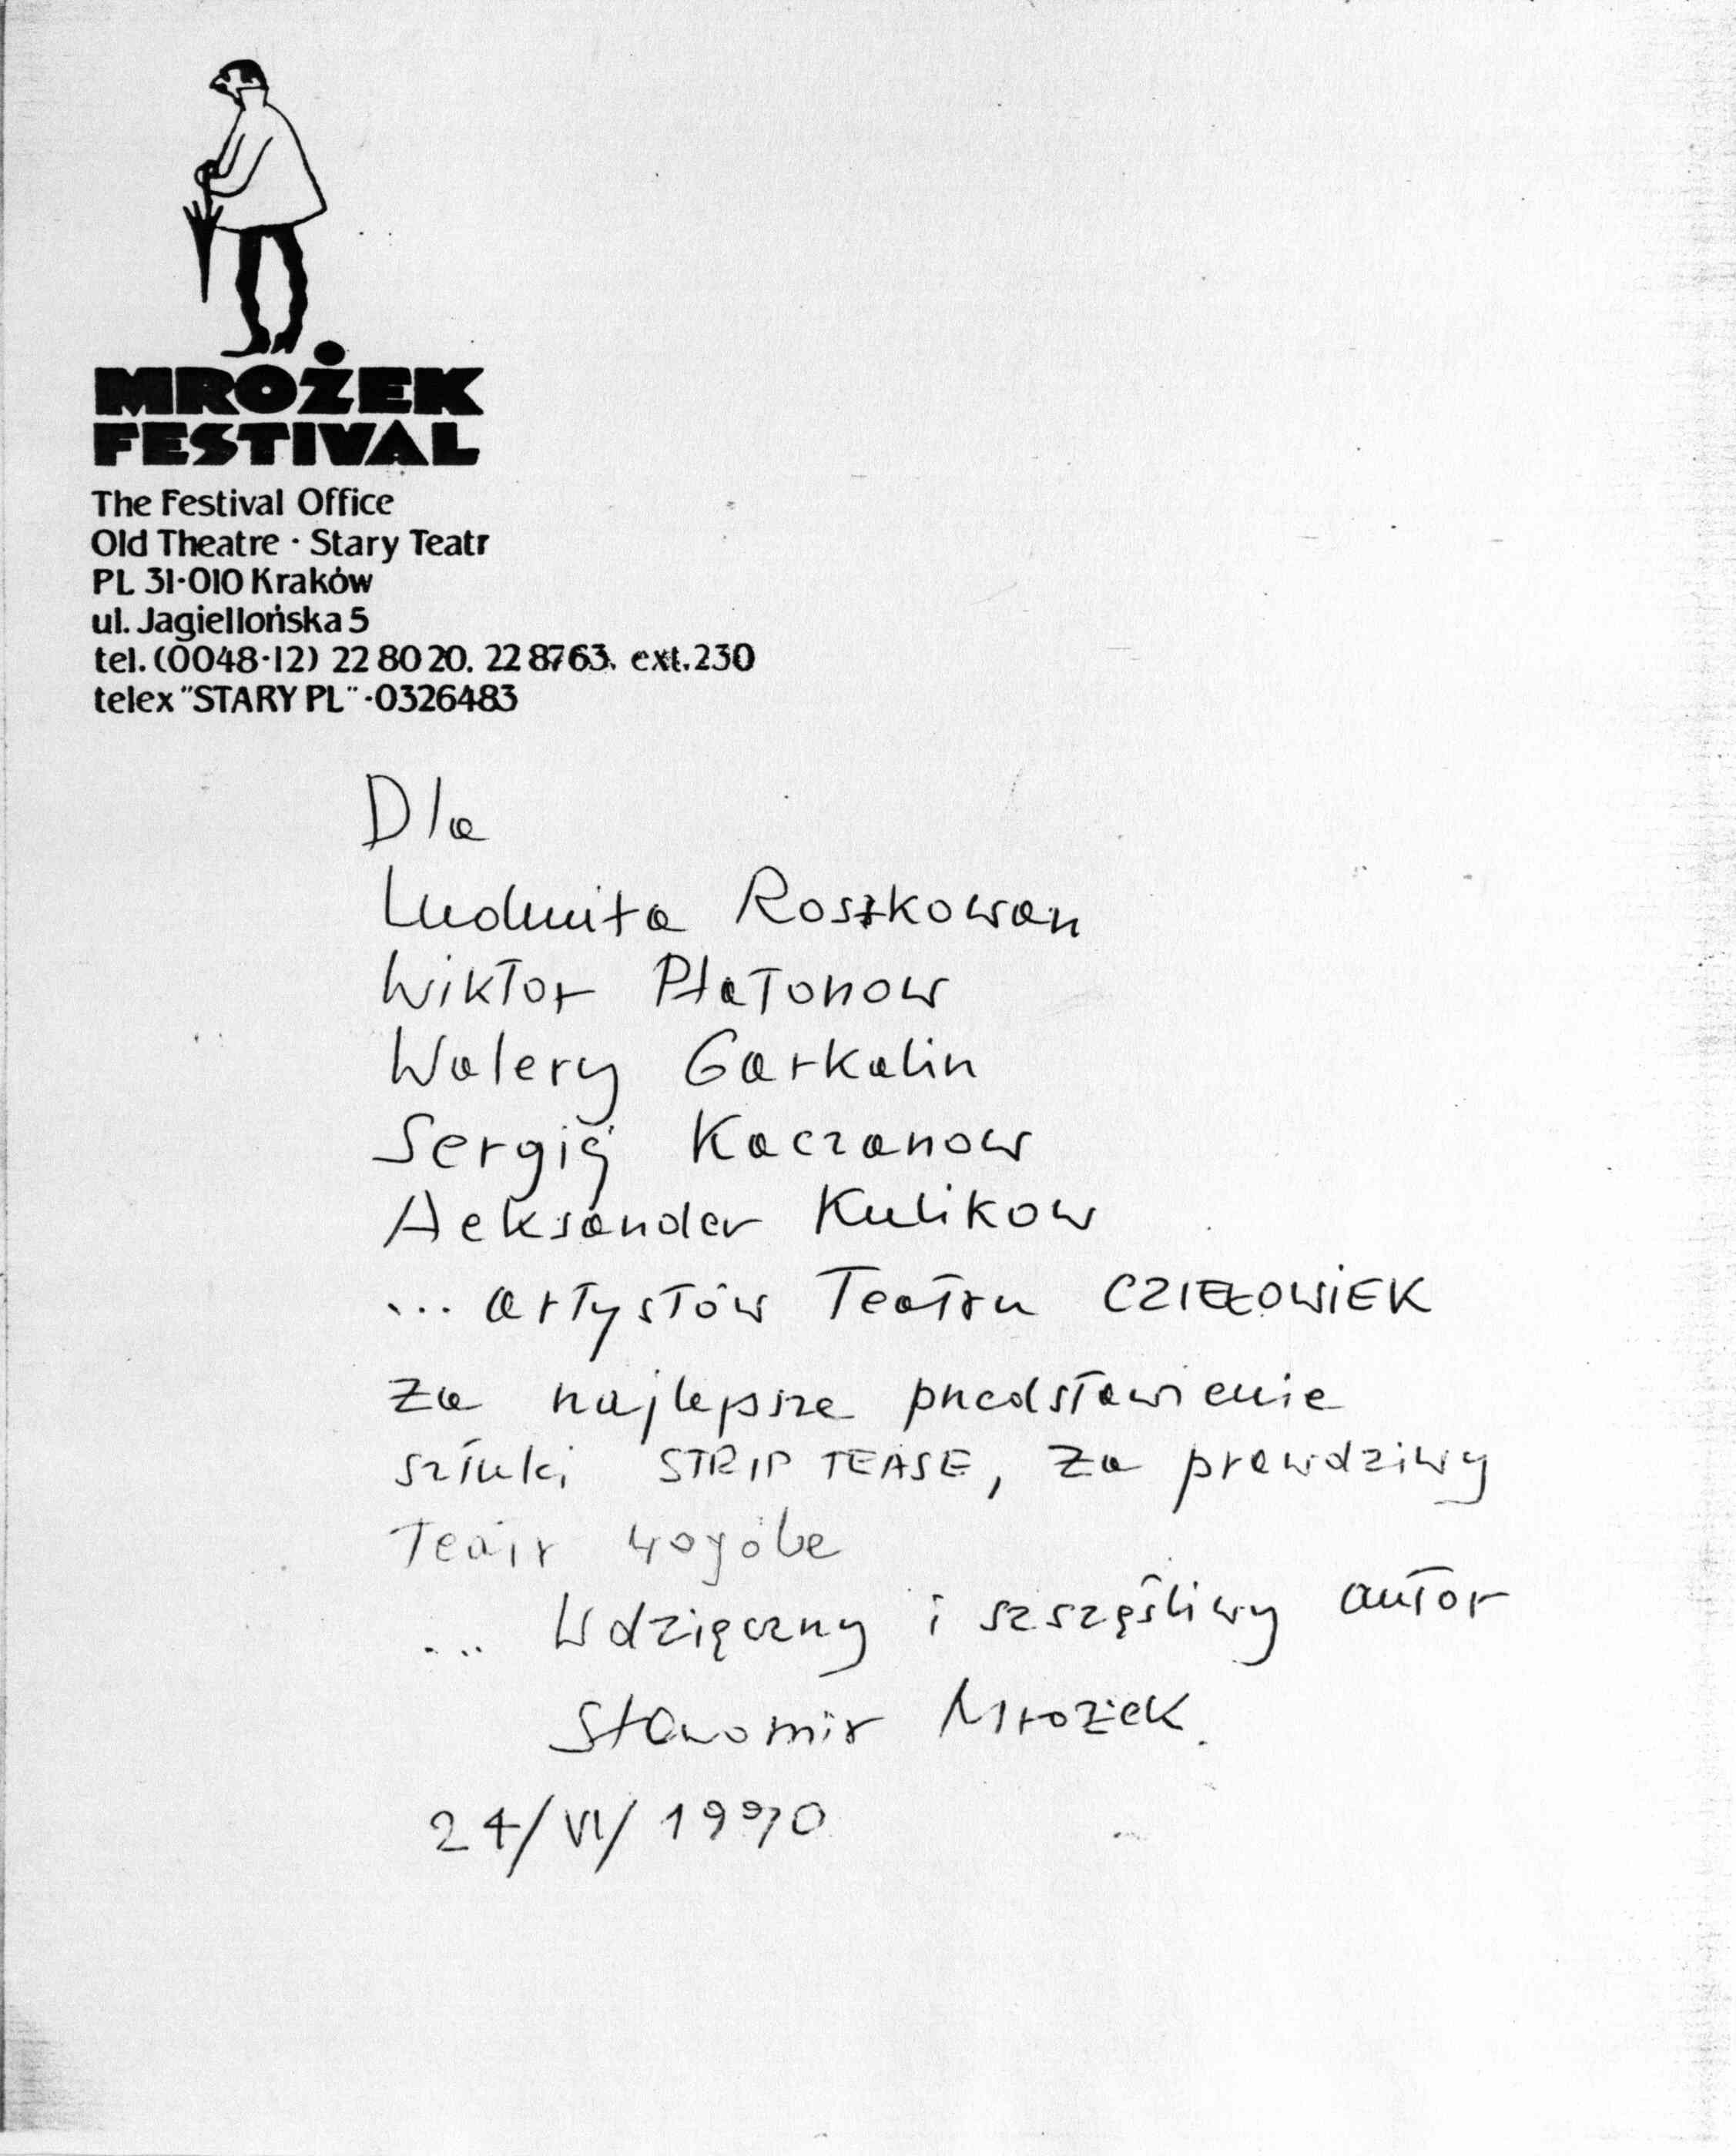 MROŻEK
FESTIVAL
The Festival Office
Old Theatre · Stary Teatr
PL 31-010 Kraków
ul. Jagiellońska 5
tel. (0048-12) 22 80 20, 22 87 63, ext. 230
telex "STARY PL" -0326483
Dla
Ludmiła Roszkowan
Wiktor Płatonow
Walery Garkalin
Sergiej Kaczanow
Aeksander Kulikow
... artystów Teatru CZIEŁOWIEK
Za najlepsze przedstawienie
sztuki STRIP TEASE, za prawdziwy
Teatr w ogóle
... Wdzięczny i szczęśliwy autor
Sławomir Mrożek.
24/VI/1990